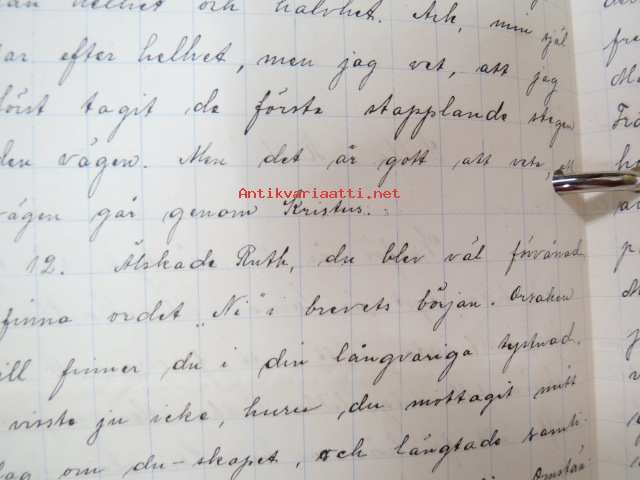 helhet och halvhet. Ack, min själ
efter helhet, men jag vet, att jag
först tagit de första stapplande stegen
den vägen. Men det är gott att veta, att
Antikvariaatti.net
vägen går genom Kristus.
12. Älskade Ruth, du blev väl förvånad
finna ordet "Ni" i brevets början. Orsaken
till finner du i din långvariga tystnad.
visste ju icke, huru du mottagit mitt
om du-skapet, och längtade samti-
Omstän-